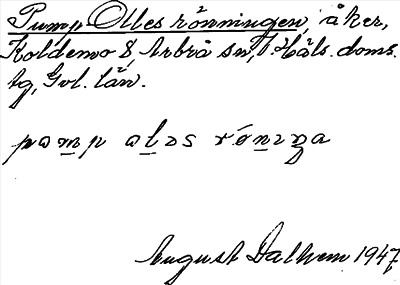 Pump Olles rönningen, åker,
Koldemo 8, Arbrå sn, N. Häls. doms.
tg, Gvl. län.
pomp olɘs rǿnɩŋa
August Dalhem 1947